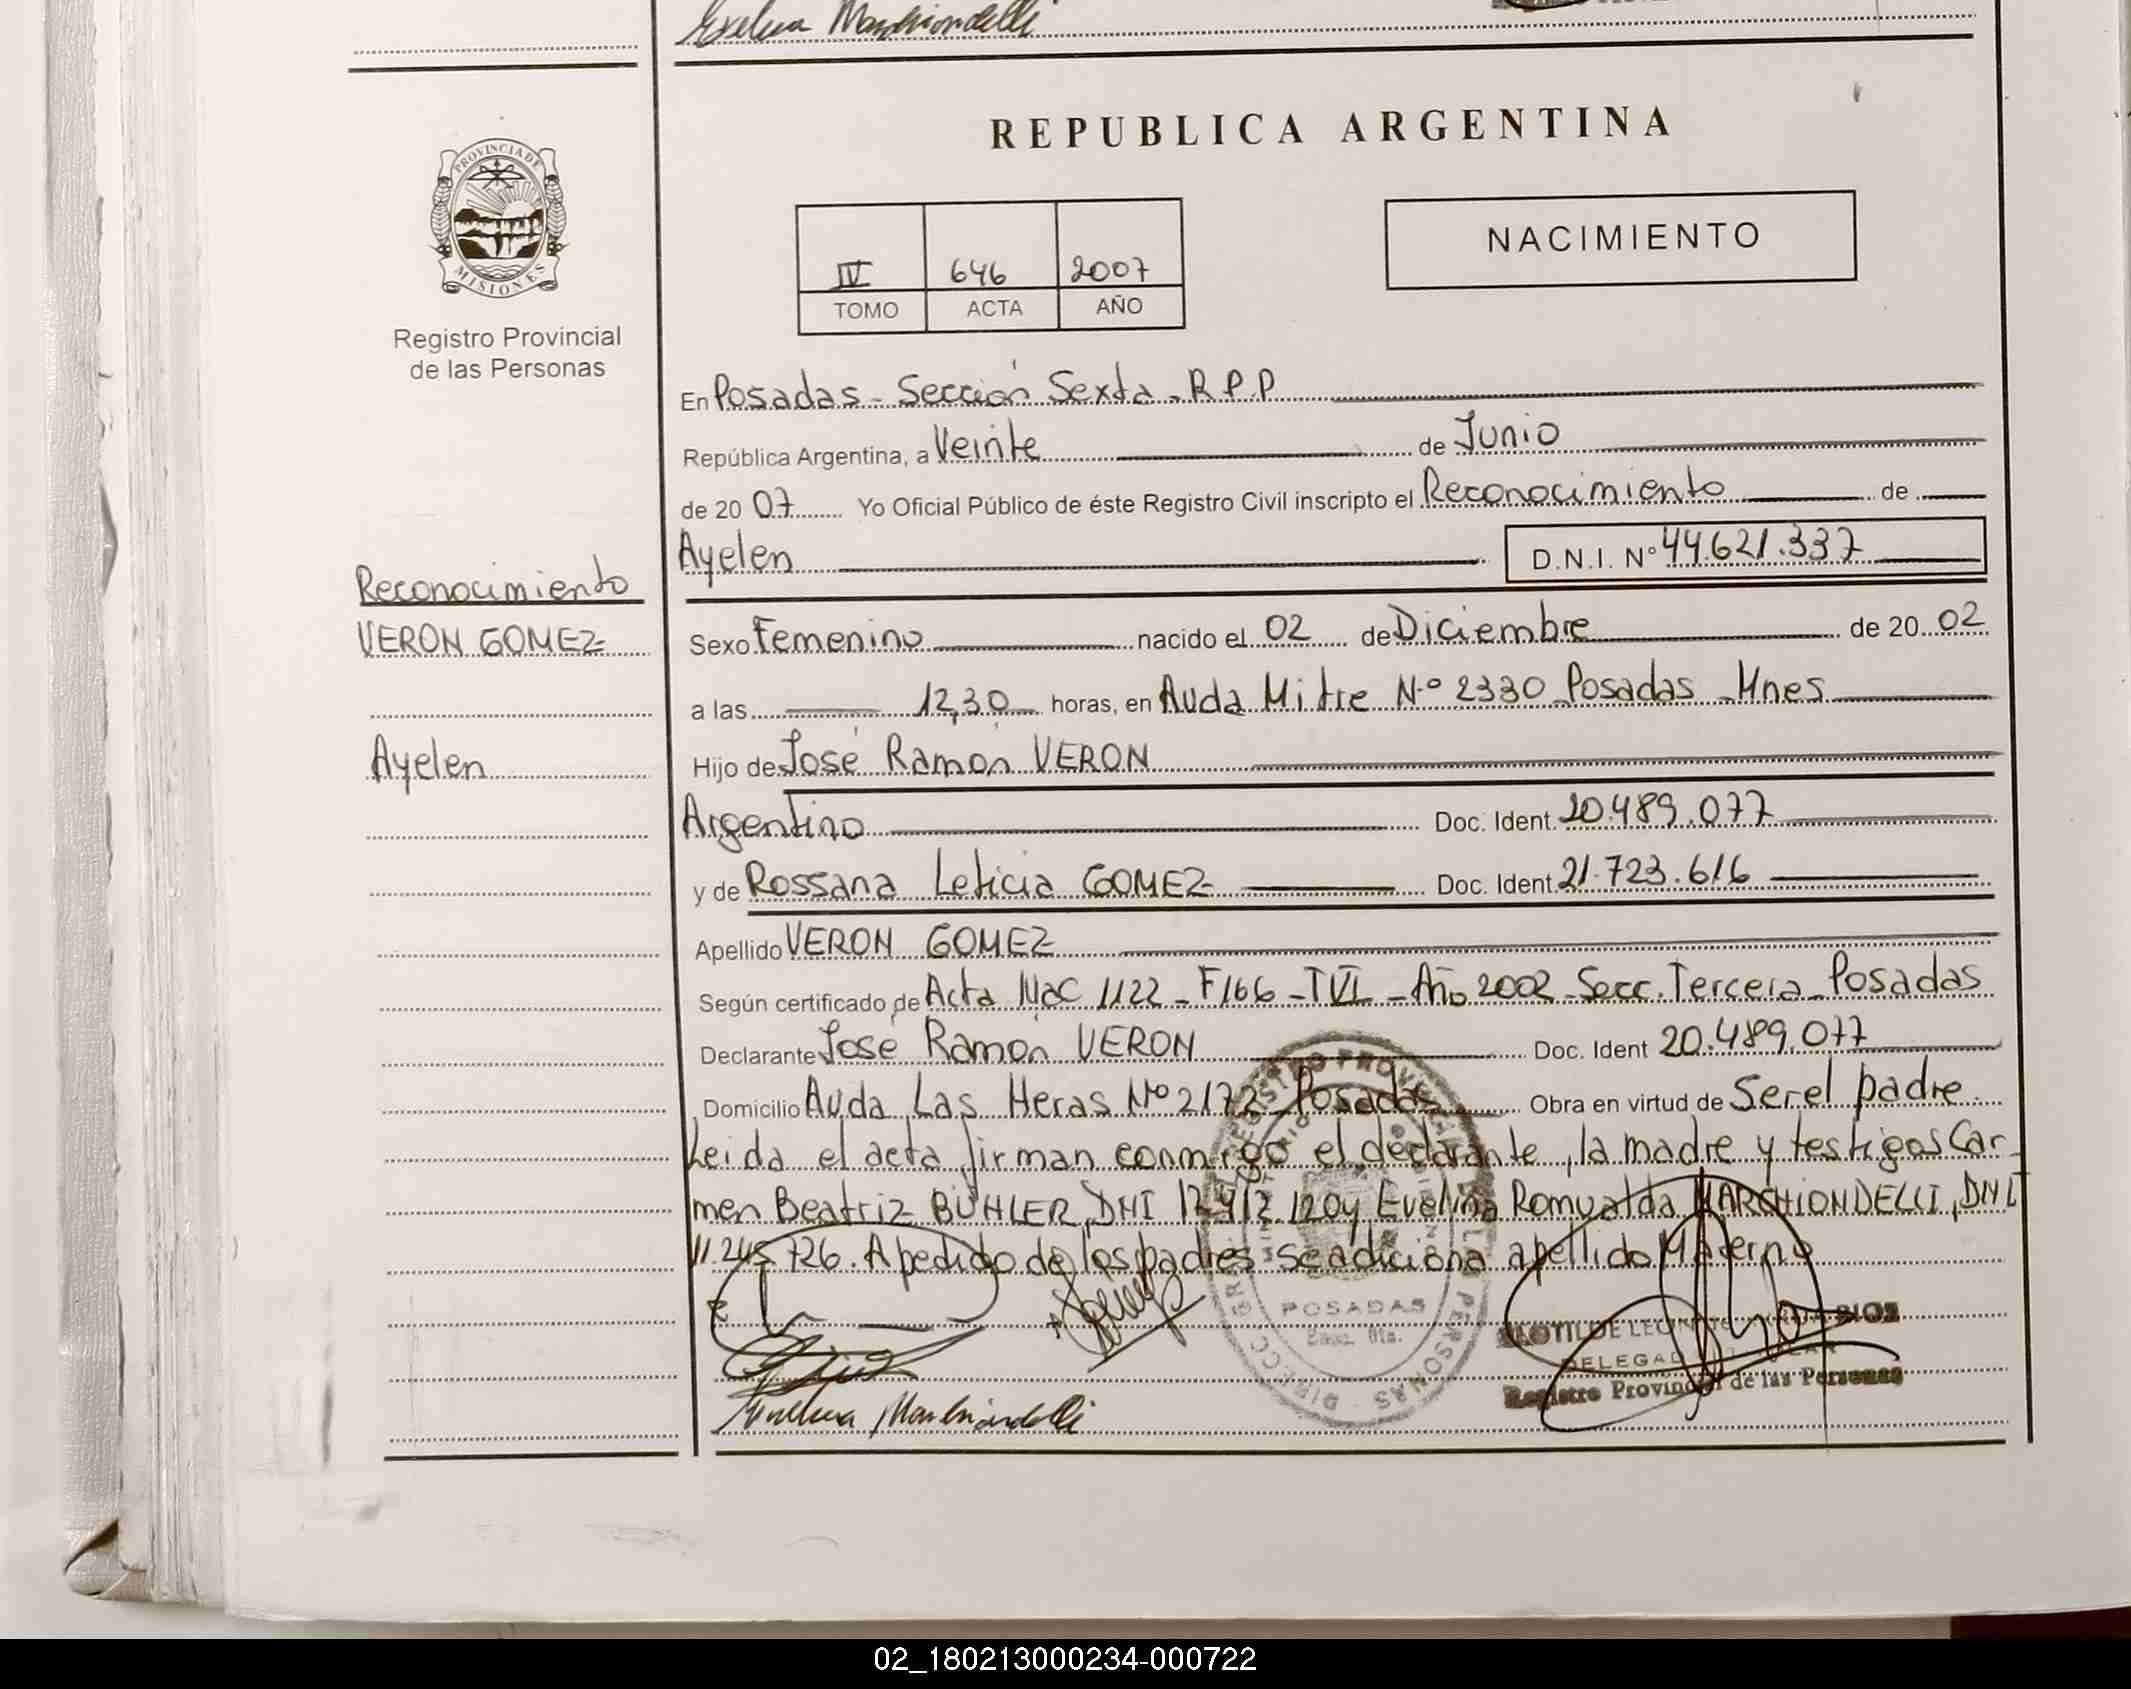 Evelina Marchiondelli
REPUBLICA ARGENTINA
PROVINCIA DE
MISIONES
Registro Provincial
de las Personas
IV 646 2007
TOMO ACTA AÑO
NACIMIENTO
En Posadas - Sección Sexta - R.P.P
República Argentina, a Veinte de Junio
de 20 07 Yo Oficial Público de éste Registro Civil inscripto el Reconocimiento de
Ayelen D.N.I. Nº 44.621.337
Reconocimiento
VERON GOMEZ
Ayelen
Sexo Femenino nacido el 02 de Diciembre de 20 02
a las 12,30 horas, en Avda Mitre Nº 2330 Posadas - Mnes
Hijo de José Ramón VERON
Argentino Doc. Ident. 20.489.077
y de Rossana Leticia GOMEZ Doc. Ident. 21.723.616
Apellido VERON GOMEZ
Según certificado de Acta Nac 1122 - F166 - TVI - Año 2002 - Secc. Tercera - Posadas
Declarante José Ramón VERON Doc. Ident 20.489.077
Domicilio Avda Las Heras Nº 2172 Posadas Obra en virtud de Ser el padre
Leida el acta firman conmigo el declarante, la madre y testigos Car-
men Beatriz BUHLER, DNI y Evelina Romualda MARCHIONDELLI, DNI
11.245.726. A pedido de los padres se adiciona apellido Materno
POSADAS
DELEGADA TITULAR
Registro Provincial de las Personas
Evelina Marchiondelli
02_180213000234-000722